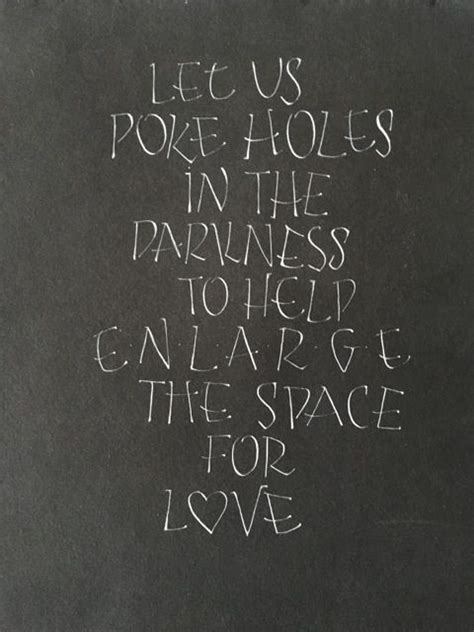 LET US
POKE HOLES
IN THE
DARKNESS
TO HELP
E·N·L·A·R·G·E
THE SPACE
FOR
L♡VE